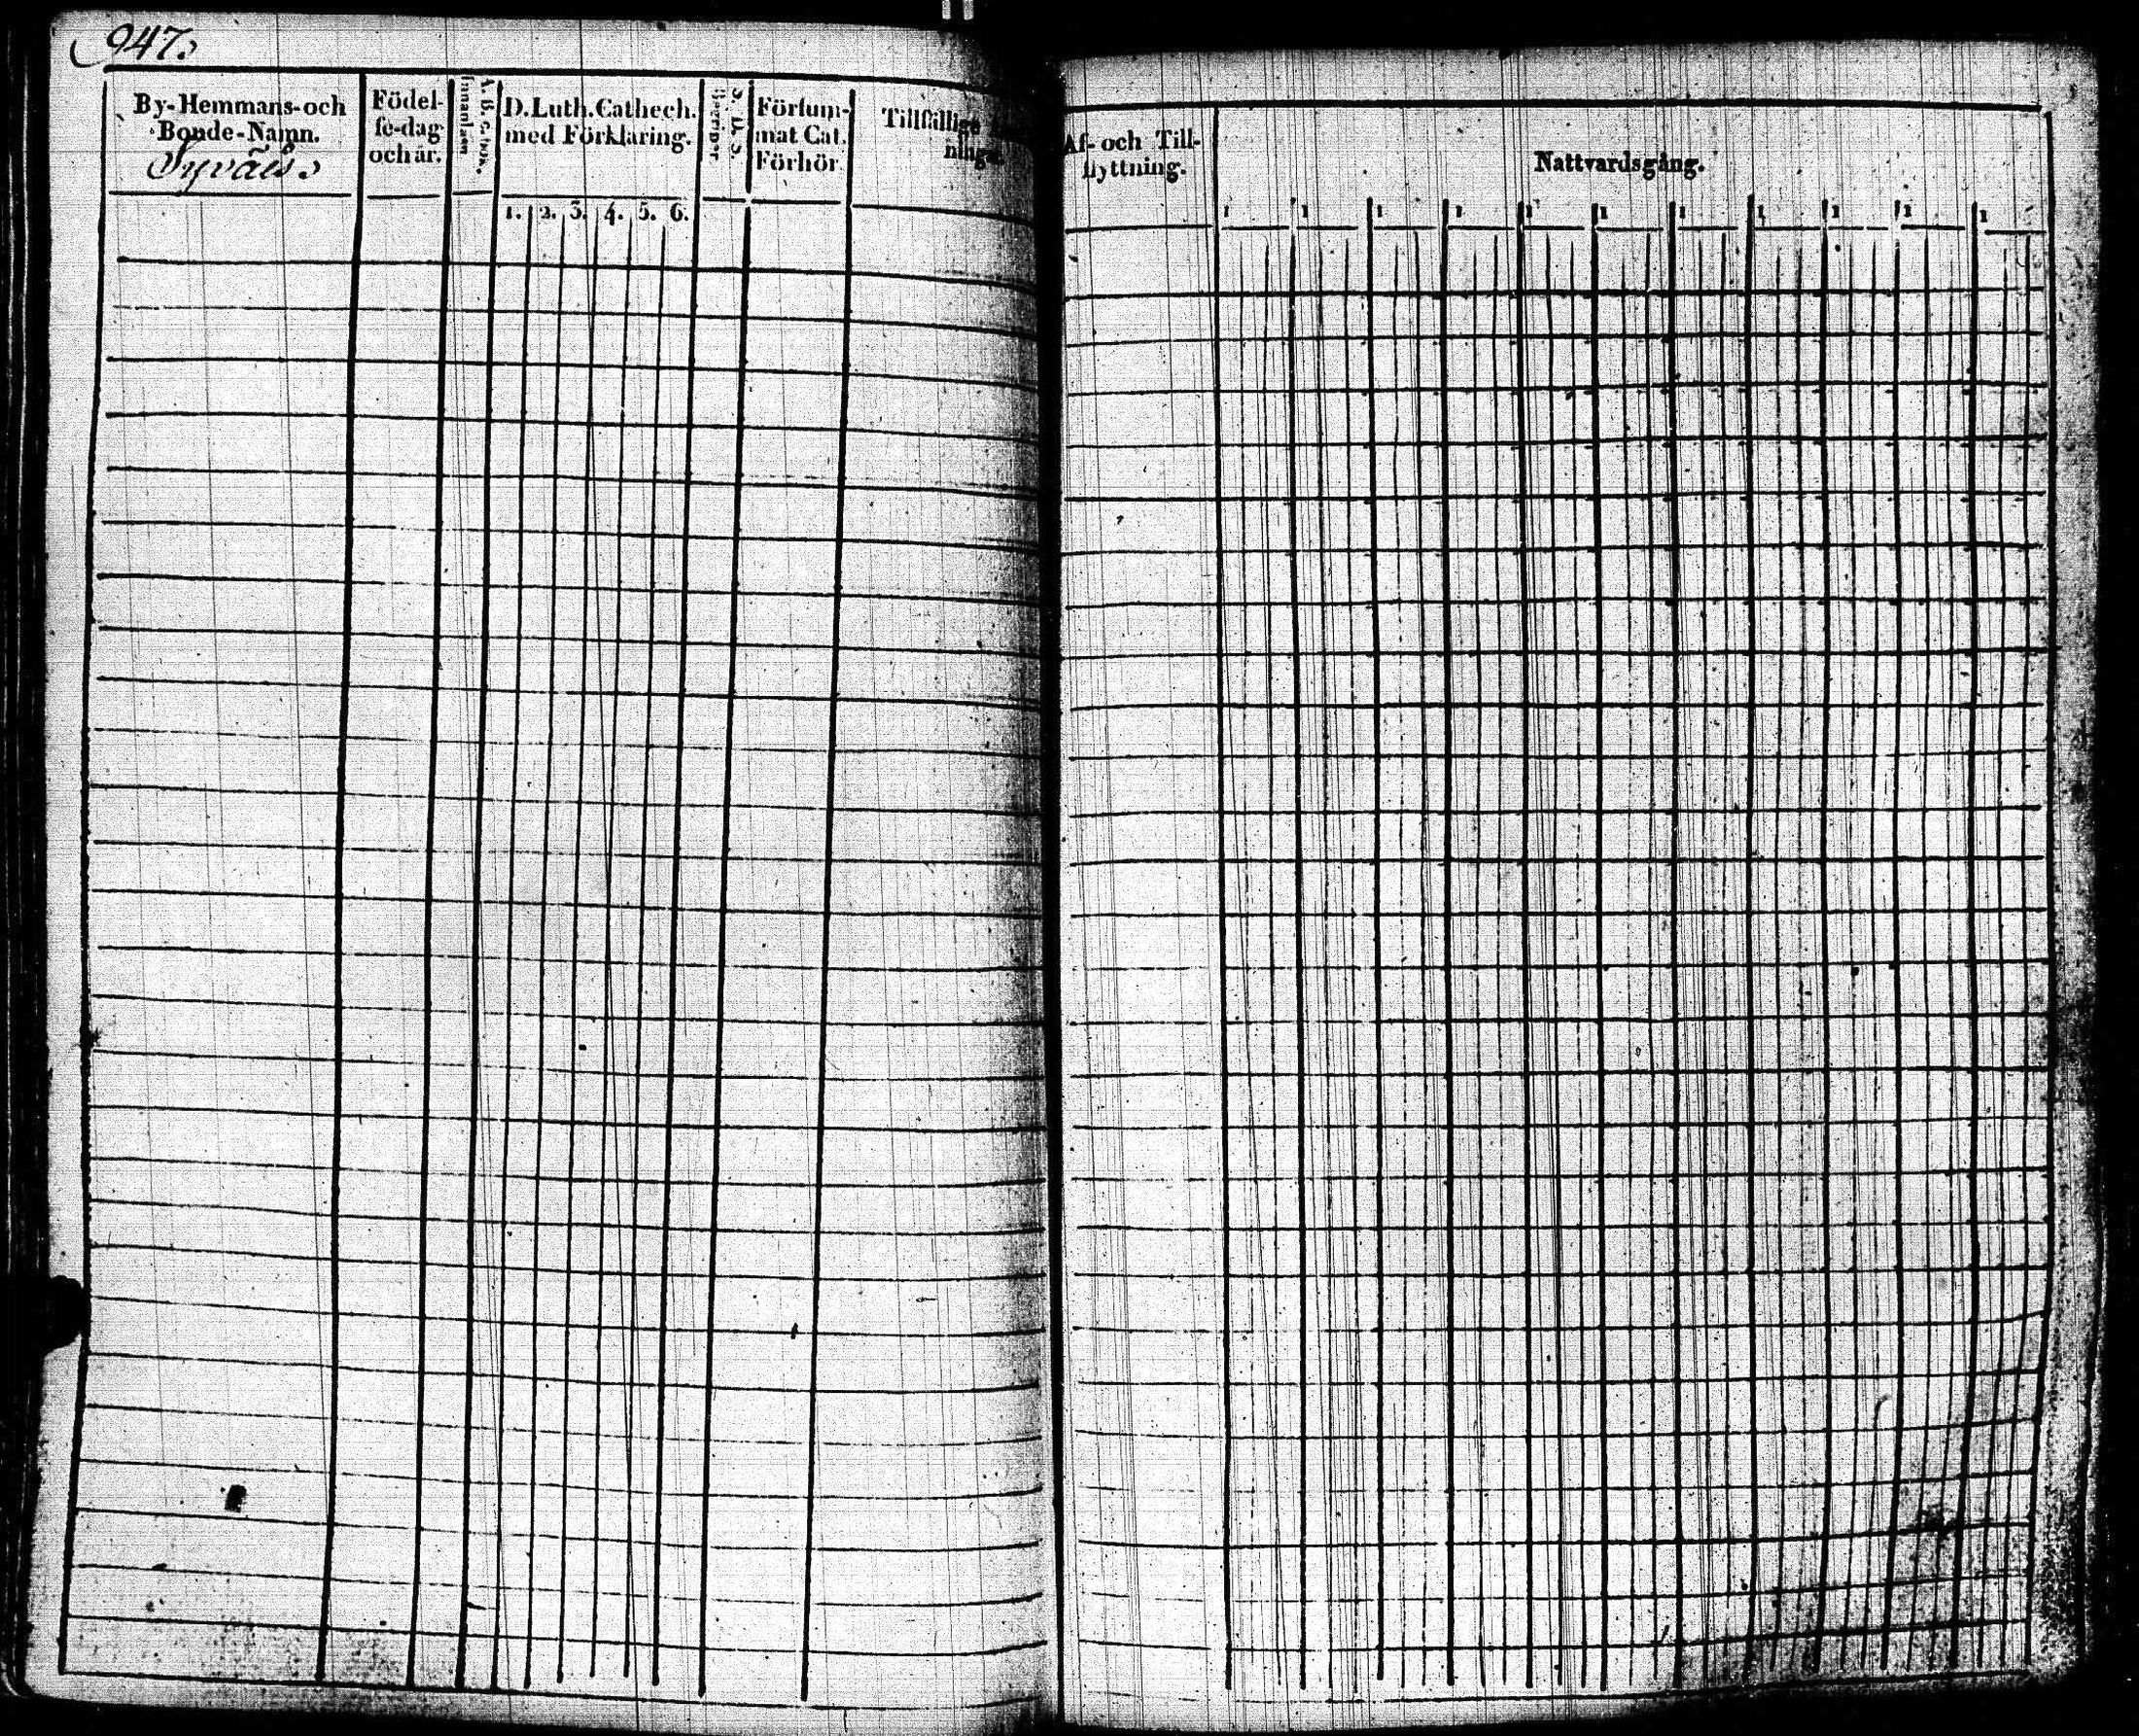 947.
By-Hemmans-och
Bonde-Namn.
Syväis.
Födel-
se-dag
och år.
A. B. C. bok.
Innanläsn
D. Luth. Cathech.
med Förklaring.
1. 2. 3. 4. 5. 6.
Begriper
Försum-
mat Cat.
Förhör.
Tillfällige
Af- och Till-
flyttning.
Nattvardsgång.
1 1 1 1 1 1 1 1 1 1 1